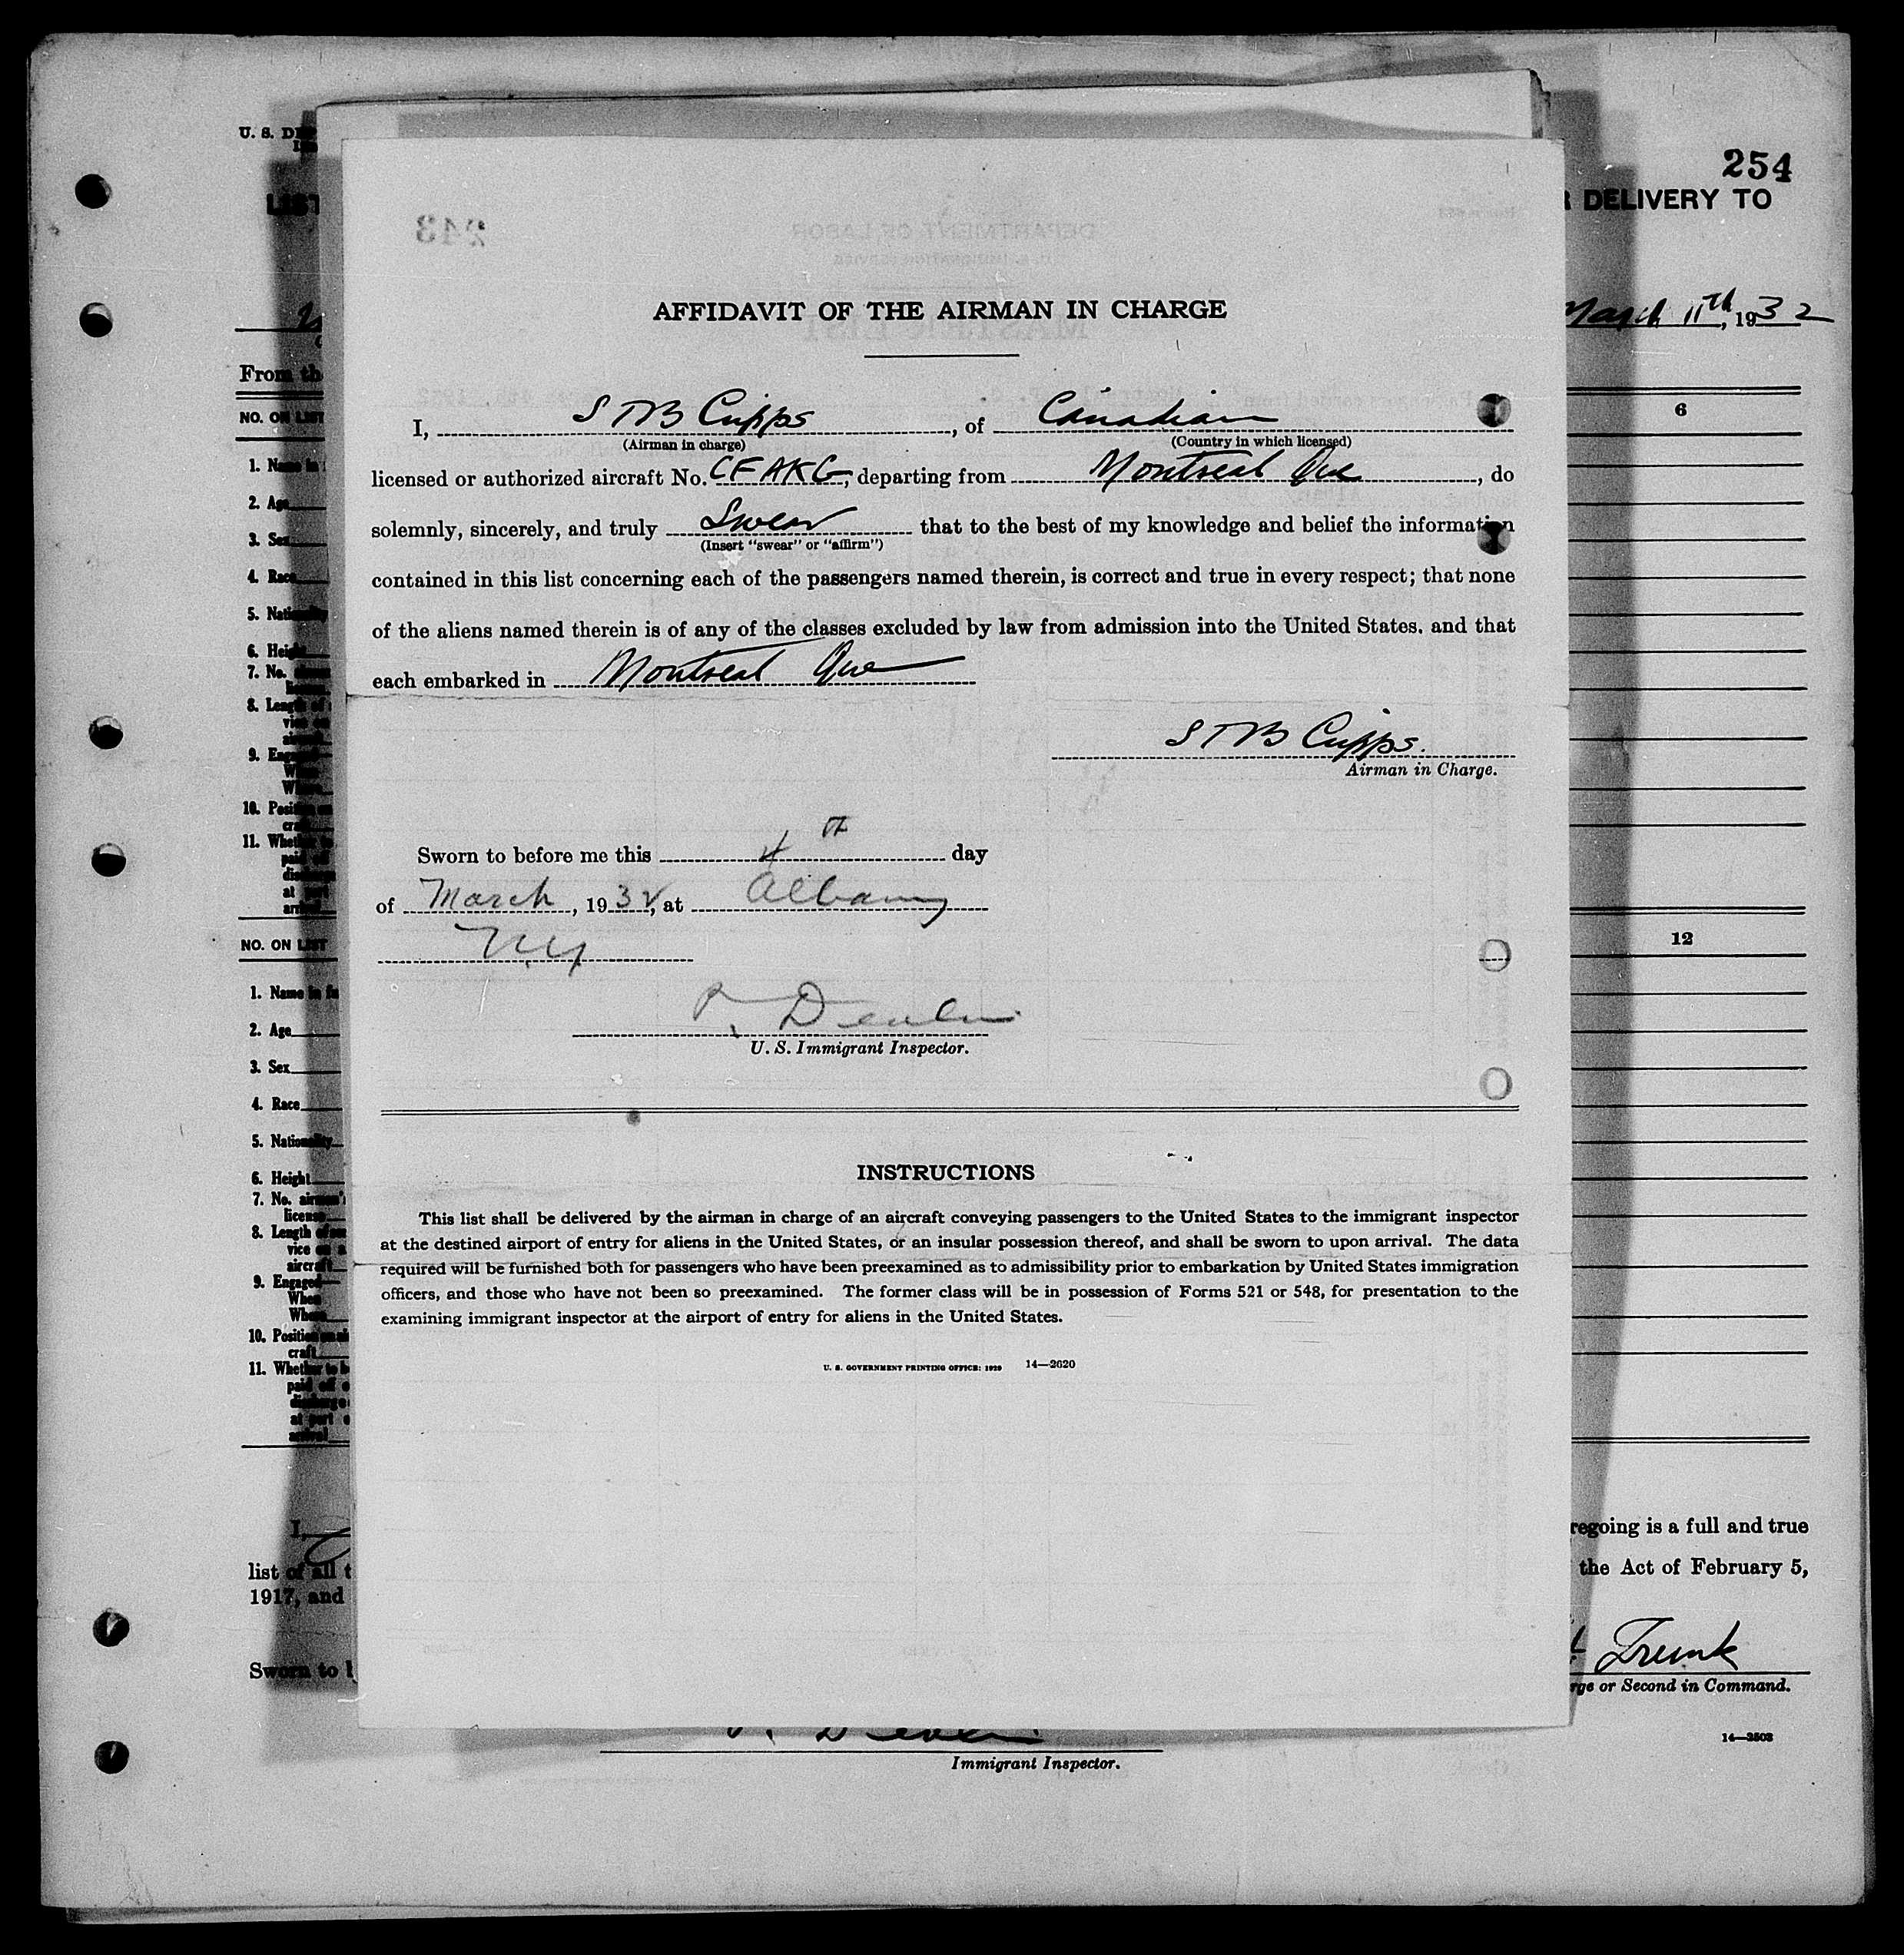 254
U. S. DEP
LIST
R DELIVERY TO
March 11th, 1932
From th
NO. ON LIST
6
1. Name in
2. Age
3. Sex
4. Race
5. Nationality
6. Height
7. No.
8. Length of
9. Eng
10. Posi
11. Whet
NO. ON LIST
12
1. Name in fu
2. Age
3. Sex
4. Race
5. Nationality
6. Height
7. No. airman's
license
8. Length of
vice on a
aircraft
9. Engaged
When
Where
10. Position on air
craft
11. Whether to b
paid off o
discharge
at port o
arrival
I,
list of all t
1917, and
Sworn to b
243
AFFIDAVIT OF THE AIRMAN IN CHARGE
I, S T B Cripps, of Canadian
(Airman in charge) (Country in which licensed)
licensed or authorized aircraft No. CF AKG, departing from Montreal Que, do
solemnly, sincerely, and truly Swear that to the best of my knowledge and belief the information
(Insert "swear" or "affirm")
contained in this list concerning each of the passengers named therein, is correct and true in every respect; that none
of the aliens named therein is of any of the classes excluded by law from admission into the United States, and that
each embarked in Montreal Que
S T B Cripps.
Airman in Charge.
Sworn to before me this 4th day
of March, 1932, at Albany
N.Y.
P. Devlin
U. S. Immigrant Inspector.
INSTRUCTIONS
This list shall be delivered by the airman in charge of an aircraft conveying passengers to the United States to the immigrant inspector
at the destined airport of entry for aliens in the United States, or an insular possession thereof, and shall be sworn to upon arrival. The data
required will be furnished both for passengers who have been preexamined as to admissibility prior to embarkation by United States immigration
officers, and those who have not been so preexamined. The former class will be in possession of Forms 521 or 548, for presentation to the
examining immigrant inspector at the airport of entry for aliens in the United States.
U. S. GOVERNMENT PRINTING OFFICE: 1929 14—2620
regoing is a full and true
the Act of February 5,
Trunk
rge or Second in Command.
14—2503
Immigrant Inspector.